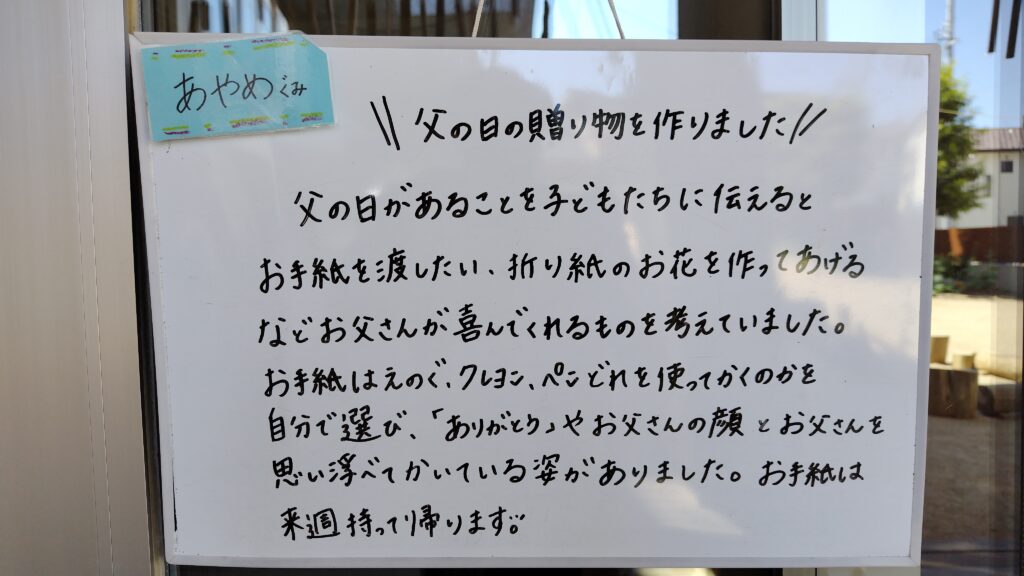 あやめぐみ
\\ 父の日の贈り物を作りました //
父の日があることを子どもたちに伝えると
お手紙を渡したい、折り紙のお花を作ってあげる
などお父さんが喜んでくれるものを考えていました。
お手紙はえのぐ、クレヨン、ペンどれを使ってかくのかを
自分で選び、「ありがとう」やお父さんの顔とお父さんを
思い浮べてかいている姿がありました。お手紙は
来週持って帰ります。